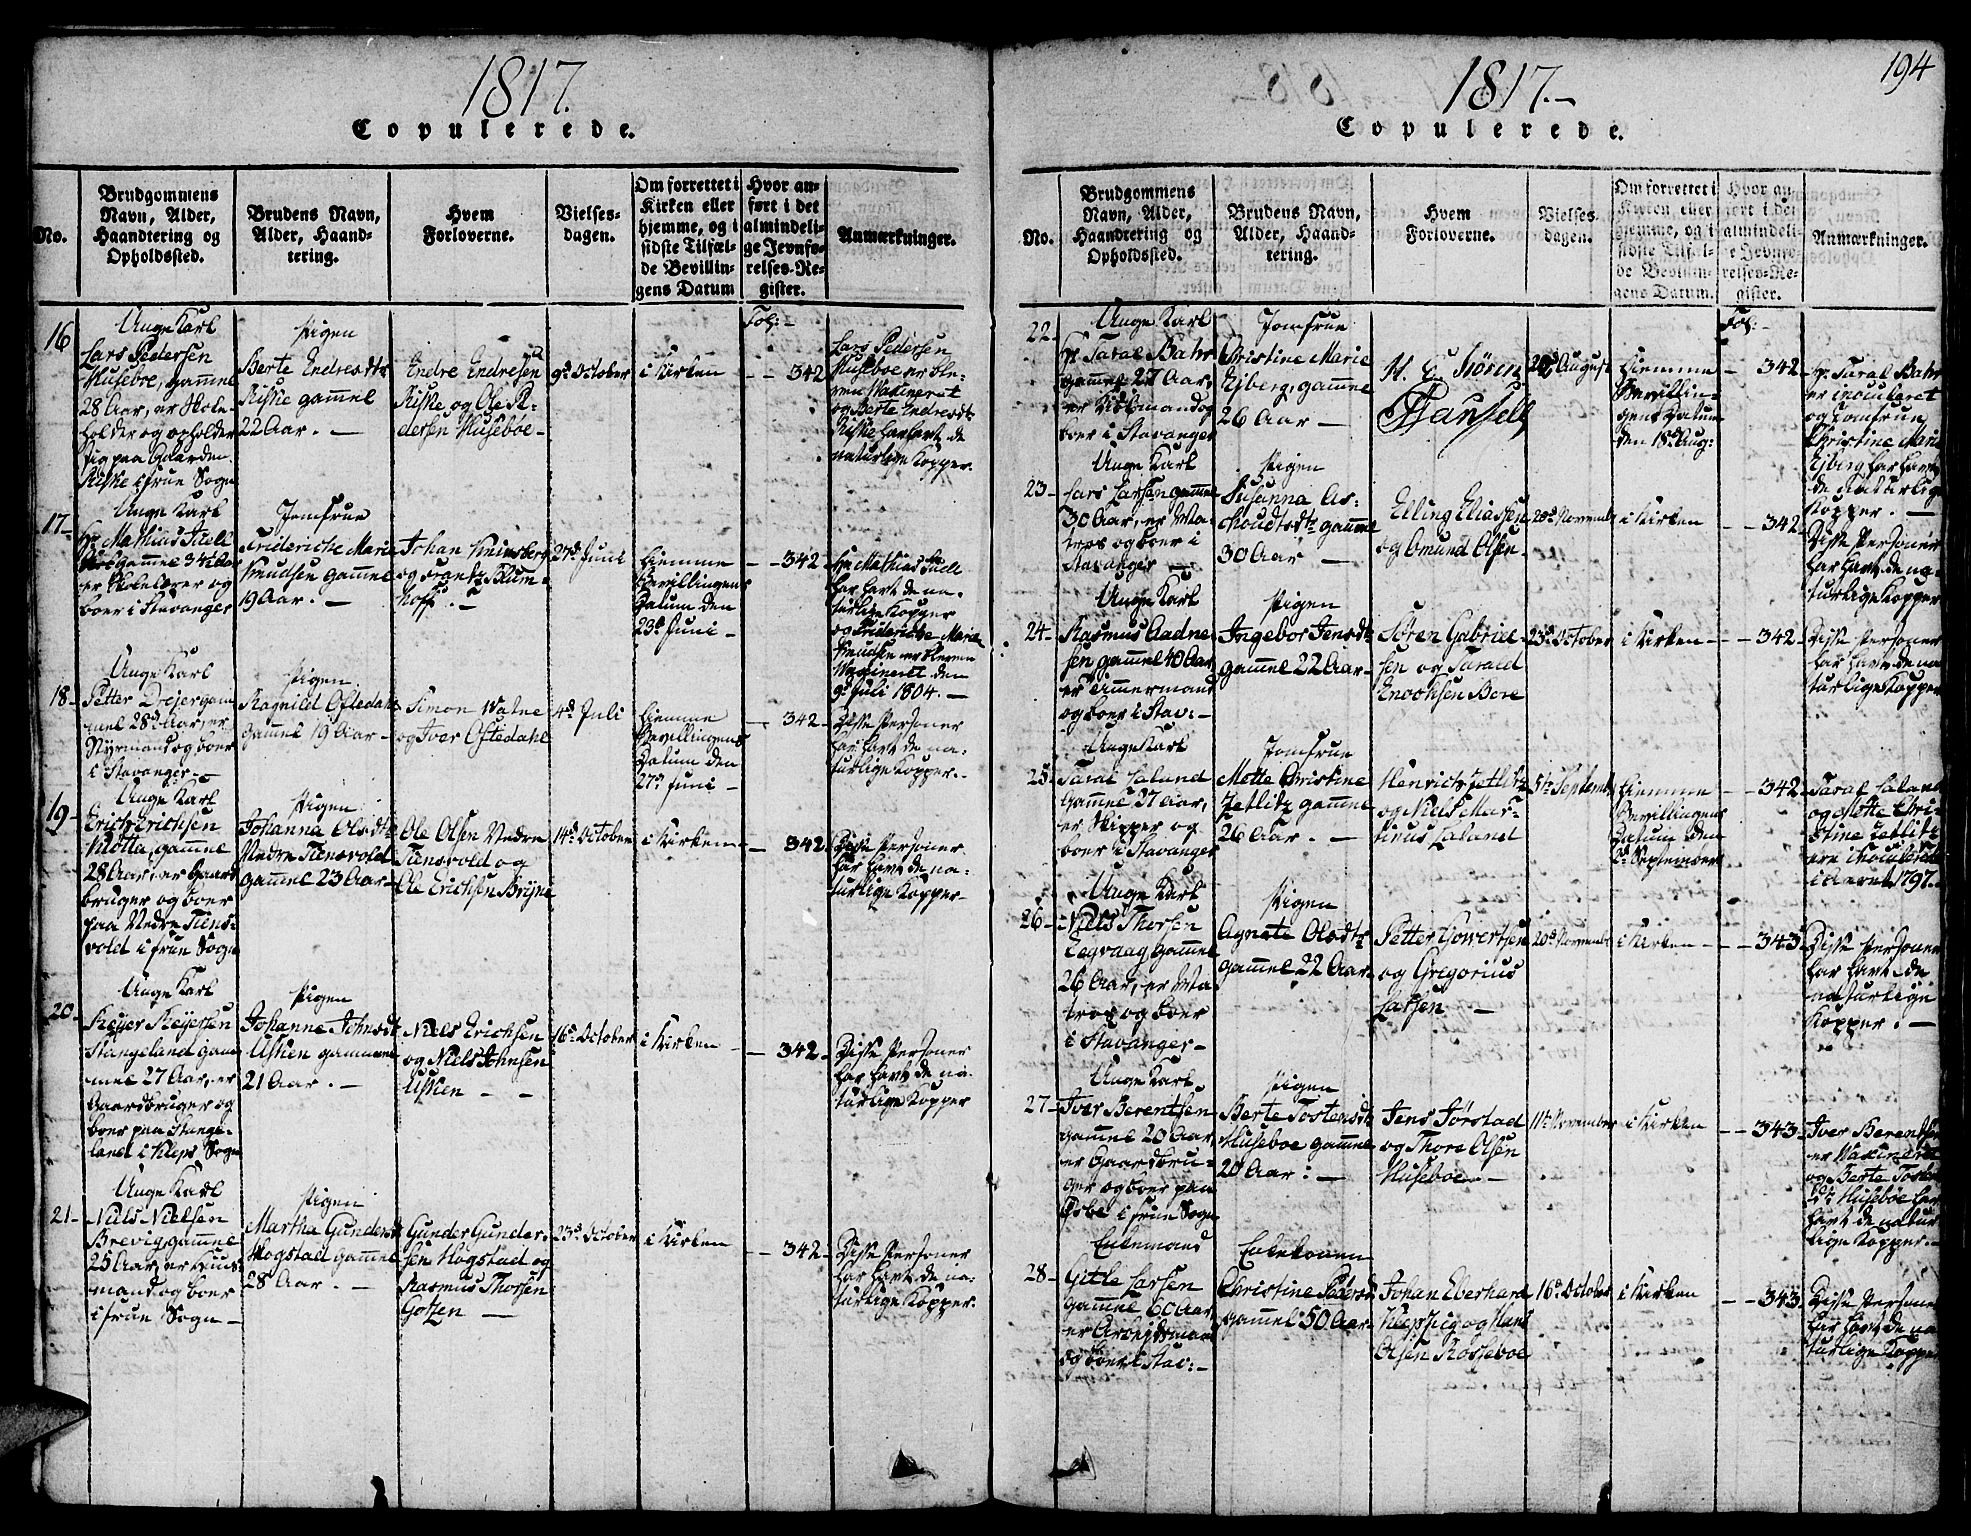 1817.
Copulerede.
No.
Brudgommens
Navn, Alder,
Haandtering og
Opholdssted.
Brudens Navn,
Alder, Haand-
tering.
Hvem
Forloverne.
Vielses-
dagen.
Om forrettet i
Kirken eller
hjemme, og i
sidste Tilfæl-
de Bevillin-
gens Datum
Hvor an-
ført i det
almindeli-
ge Jevnfø-
relses-Re-
gister.
Anmærkninger.
16
Unge Karl
Lars Pedersen
Huseboe, gammel
28 Aar, er Skole-
holder og opholder
sig paa Gaarden
Riske i frue Sogn
Pigen
Berte Endresdtr
Riske gammel
22 Aar. —
Endre Endresen
Riske, og Ole Pe-
dersen Huseboe-
9d October
i Kirken
Fol: -
- - 342
Lars Pedersen
Huseboe er ble-
ven Vaxineret
og Berte Endresdtr
Riske har havt de
naturlige Kopper.
17-
Unge Karl
Hr Mathias Juell
gammel 34 Aar
er Skolelærer og
boer i Stavanger
Jomfrue
Frideriche Marie
Knudsen gammel
19 Aar. —
Johan Kninsberg
og Frantz Blum-
hoff. —
27d Juni
Hiemme
Bevillingens
Datum den
23d Juni -
- - 342
Hr Mathias Juell
har havt de na-
turlige Kopper
og Friderische Marie
Knudsen er bleven
Vaxineret den
9d Juli 1804. —
18-
Unge Karl
Petter Dreyer gam-
mel 28 Aar, er
Styrmand og boer
i Stavanger. —
Pigen
Ragnild Oftedahl
gammel 19 Aar -
Simon Watne
og Iver Oftedahl
4d Juli
Hiemme
Bevillingens
Datum den
27d Juni -
- 342-
Disse Personer
har havt de na-
turlige Kopper. -
19-
Unge Karl
Erich Erichsen
Motta, gammel
28 Aar, er Gaard
bruger og boer
paa Nedre Tiens-
vold i frue Sogn
Pigen
Johanna Olsdtr
Nedre Tiensvold
gammel 23 Aar -
Ole Olsen Nedre
Tiensvold og
Ole Erichsen Bryne
14d October
i Kirken -
- 342.
Disse Personer
har havt de na-
turlige Kopper -
20-
Unge Karl
Reyer Reyersen
Stangeland gam
mel 27 Aar, er
Gaardbruger og
boer paa Stange-
land i Kleps Sogn
Pigen
Johanne Johnsdtr
Usken gammel
21 Aar. —
Niels Erichsen
og Niels Johnsen
Usken - -
16d October
i Kirken -
- 342-
Disse Personer
har havt de na-
turlige Kopper
21-
Unge Karl
Niels Nielsen
Brevig, gammel
25 Aar, er Huus-
mand og boer
i frue Sogn -
Pigen
Martha Gundersdtr
Hogstad gammel
28 Aar. —
Gunder Gunder-
sen Hogstad og
Rasmus Thorsen
Gotzen -
23d October
i Kirken
- - 342-
Disse Personer
har havt de na-
turlige Kopper.
194
1817. -
Copulerede.
No.
Brudgommens
Navn, Alder,
Haandtering og
Opholdssted.
Brudens Navn,
Alder, Haand-
tering.
Hvem
Forloverne.
Vielses-
dagen.
Om forrettet i
Kirken eller
hjemme, og i
sidste Tilfæl-
de Bevillin-
gens Datum.
Hvor an-
ført i det
almindeli-
ge Jevnfø-
relses-Re-
gister.
Anmærkninger.
22-
Unge Karl
Hr Taral Bahr
gammel 27 Aar,
er Kiøbmand og
boer i Stavanger
Jomfrue
Christine Marie
Ejberg, gammel
26 Aar -
August
Hiemme
Bevillin-
gens Datum
den 18d Aug:
Fol: -
- 342-
Hr Taral Bahr
er inoculeret
og Jomfrue
Christine Marie
Ejberg har havt
de naturlige
Kopper. —
23-
Unge Karl
Lars Larsen gammel
30 Aar, er Ma-
tros og boer i
Stavanger -
Pigen
Susanna As-
moudtsdtr gammel
30 Aar -
Elling Eliassen
og Omund Olsen -
20d November
i Kirken -
- 342-
Disse Personer
har havt de na-
turlige Kopper
24-
Unge Karl
Rasmus Aadne-
sen gammel 40 Aar
er Timmermand
og boer i Stav: -
Pigen
Ingebor Jensdtr
gammel 22 Aar -
Søren Gabriel-
sen og Tarald
Enochsen Bore
23d October
i Kirken -
- 342-
Disse Personer
har havt de na
turlige Kopper
25-
Unge Karl
Taral Laland
gammel 37 Aar,
er Skipper og
boer i Stavanger
Jomfrue
Mette Christine
Zetlitz gammel
26 Aar. —
Henrich Zetlitz
og Niels Mar-
tinus Laland
5te Septemb
Hiemme
Bevillingens
Datum den
2d September
- 342-
Taral Laland
og Mette Chri-
stine Zetlitz
ere inoculerede
i Aaret 1797.
26-
Unge Karl
Niels Thorsen
Eegvaag gammel
26 Aar, er Ma
tros og boer
i Stavanger-
Pigen
Agnete Olsdtr
gammel 22 Aar -
Petter Govertsen
og Gregorius
Larsen -
20d Novemb
i Kirken -
- 343-
Disse Personer
har havt de
naturlige
Kopper. —
27-
Unge Karl
Iver Berentsen
gammel 20 Aar
er Gaardbru-
ger og boer paa
i frue Sogn
Pigen
Berte Tostensdtr
Huseboe gammel
20 Aar: -
Jens Jørstad
og Thore Olsen
Huseboe. -
11te November
i Kirken
- - 343-
Iver Berentsen
er Vaxineret
og Berte Tosten
sdtr Huseboe har
havt de natur
lige Kopper. —
28-
Enkemand
Gitle Larsen
gammel 60 Aar,
er Arbejdsmand
og boer i Stav: -
Enkekonen
Christine Pedersdtr
gammel 50 Aar -
Johan Eberhard
Kleppig og Hans
Olsen Rosseboe
16d October
i Kirken
- - 343-
Disse Personer
har havt de na-
turlige Kopper